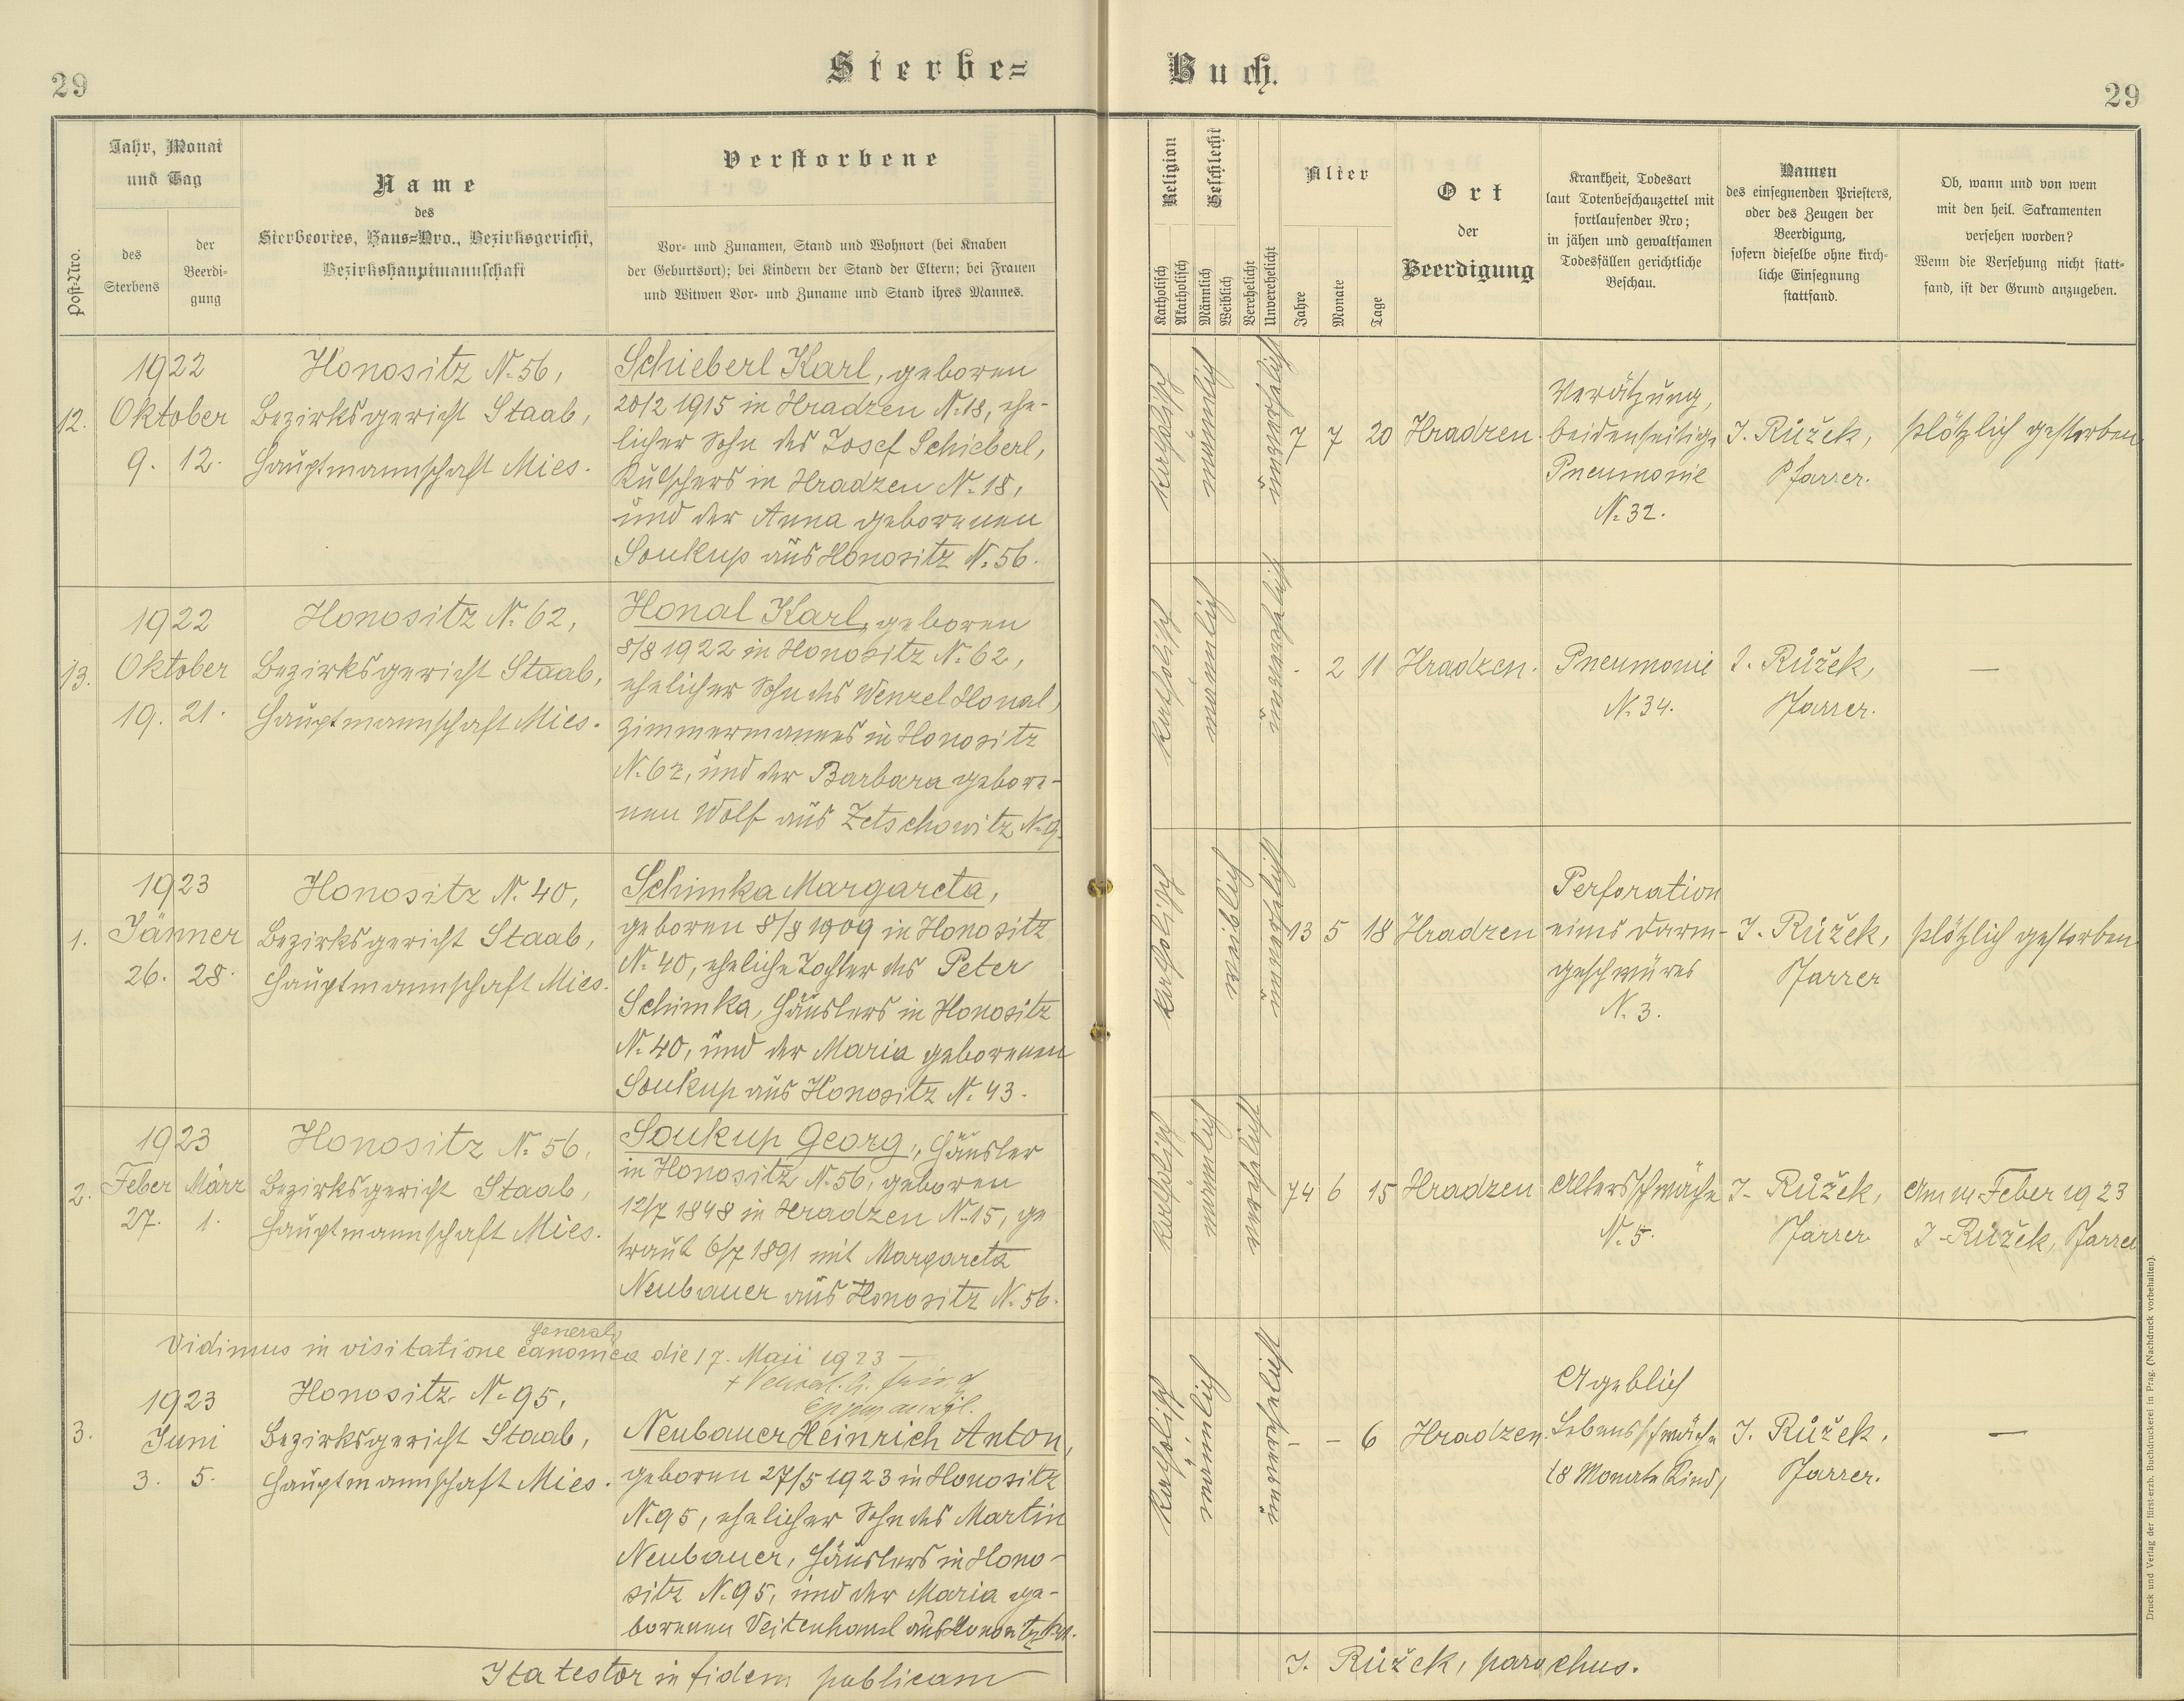 29
Sterbe=
Buch.
29
Post-Nro.
Jahr, Monat
und Tag
des
Sterbens
der
Beerdi-
gung
Name
des
Sterbeortes, Haus=Nro., Bezirksgericht,
Bezirkshauptmannschaft
Verstorbene
Vor- und Zunamen, Stand und Wohnort (bei Knaben
der Geburtsort); bei Kindern der Stand der Eltern; bei Frauen
und Witwen Vor- und Zuname und Stand ihres Mannes.
Religion
Katholisch
Akatholisch
Geschlecht
Männlich
Weiblich
Verehelicht
Unverehelicht
Alter
Jahre
Monate
Tage
Ort
der
Beerdigung
Krankheit, Todesart
laut Totenbeschauzettel mit
fortlaufender Nro;
in jähen und gewaltsamen
Todesfällen gerichtliche
Beschau.
Namen
des einsegnenden Priesters,
oder des Zeugen der
Beerdigung,
sofern dieselbe ohne kirch-
liche Einsegnung
stattfand.
Ob, wann und von wem
mit den heil. Sakramenten
versehen worden?
Wenn die Versehung nicht statt-
fand, ist der Grund anzugeben.
12.
1922
Oktober
9. 12.
Honositz N. 56,
Bezirksgericht Staab,
Hauptmannschaft Mies.
Schieberl Karl, geboren
20/2 1915 in Hradzen N. 18, ehe-
licher Sohn des Josef Schieberl,
Kutschers in Hradzen N. 18,
und der Anna geborenen
Soukup aus Honositz N. 56.
katholisch
männlich
unverehelicht
7 7 20
Hradzen.
Verätzung,
beidenseitige
Pneumonie
N. 32.
J. Růžek,
Pfarrer.
plötzlich gestorben
13.
1922
Oktober
19. 21.
Honositz N. 62,
Bezirksgericht Staab,
Hauptmannschaft Mies.
Honal Karl, geboren
8/8 1922 in Honositz N. 62,
ehelicher Sohn des Wenzel Honal,
Zimmermannes in Honositz
N. 62, und der Barbara gebore-
nen Wolf aus Zetschowitz N. 19.
katholisch
männlich
unverehelicht
- 2 11
Hradzen.
Pneumonie
N. 34.
J. Růžek,
Pfarrer.
—
1.
1923
Jänner
26. 28.
Honositz N. 40,
Bezirksgericht Staab,
Hauptmannschaft Mies.
Schimka Margareta,
geboren 8/8 1909 in Honositz
N. 40, eheliche Tochter des Peter
Schimka, Häuslers in Honositz
N. 40, und der Maria geborenen
Soukup aus Honositz N. 43.
katholisch
weiblich
unverehelicht
13 5 18
Hradzen
Perforation
eines Darm-
geschwüres
N. 3.
J. Růžek,
Pfarrer
plötzlich gestorben
2.
1923
Feber März
27. 1.
Honositz N. 56,
Bezirksgericht Staab,
Hauptmannschaft Mies.
Soukup Georg, Häusler
in Honositz N. 56, geboren
12/7 1848 in Hradzen N. 15, ge
traut 6/7 1891 mit Margareta
Neubauer aus Honositz N. 56.
katholisch
männlich
verehelicht
74 6 15
Hradzen
Altersschwäche
N. 5.
J. Růžek,
Pfarrer
Am 14. Feber 1923
J. Růžek, Pfarrer
generali
Vidimus in visitatione canonica die 17. Maji 1923 —
3.
1923
Juni
3. 5.
Honositz N. 95,
Bezirksgericht Staab,
Hauptmannschaft Mies.
Neubauer Heinrich Anton,
geboren 27/5 1923 in Honositz
N. 95, ehelicher Sohn des Martin
Neubauer, Häuslers in Hono-
sitz N. 95, und der Maria ge-
borenen Veitenhansl aus Honositz
katholisch
männlich
unverehelicht
- - 6
Hradzen.
Ageblich
Lebensschwäche
/8 Monate Kind/
J. Růžek,
Pfarrer.
—
Ita testor in fidem publicam
J. Růžek, parochus.
Druck und Verlag der fürst-erzb. Buchdruckerei in Prag. (Nachdruck vorbehalten).